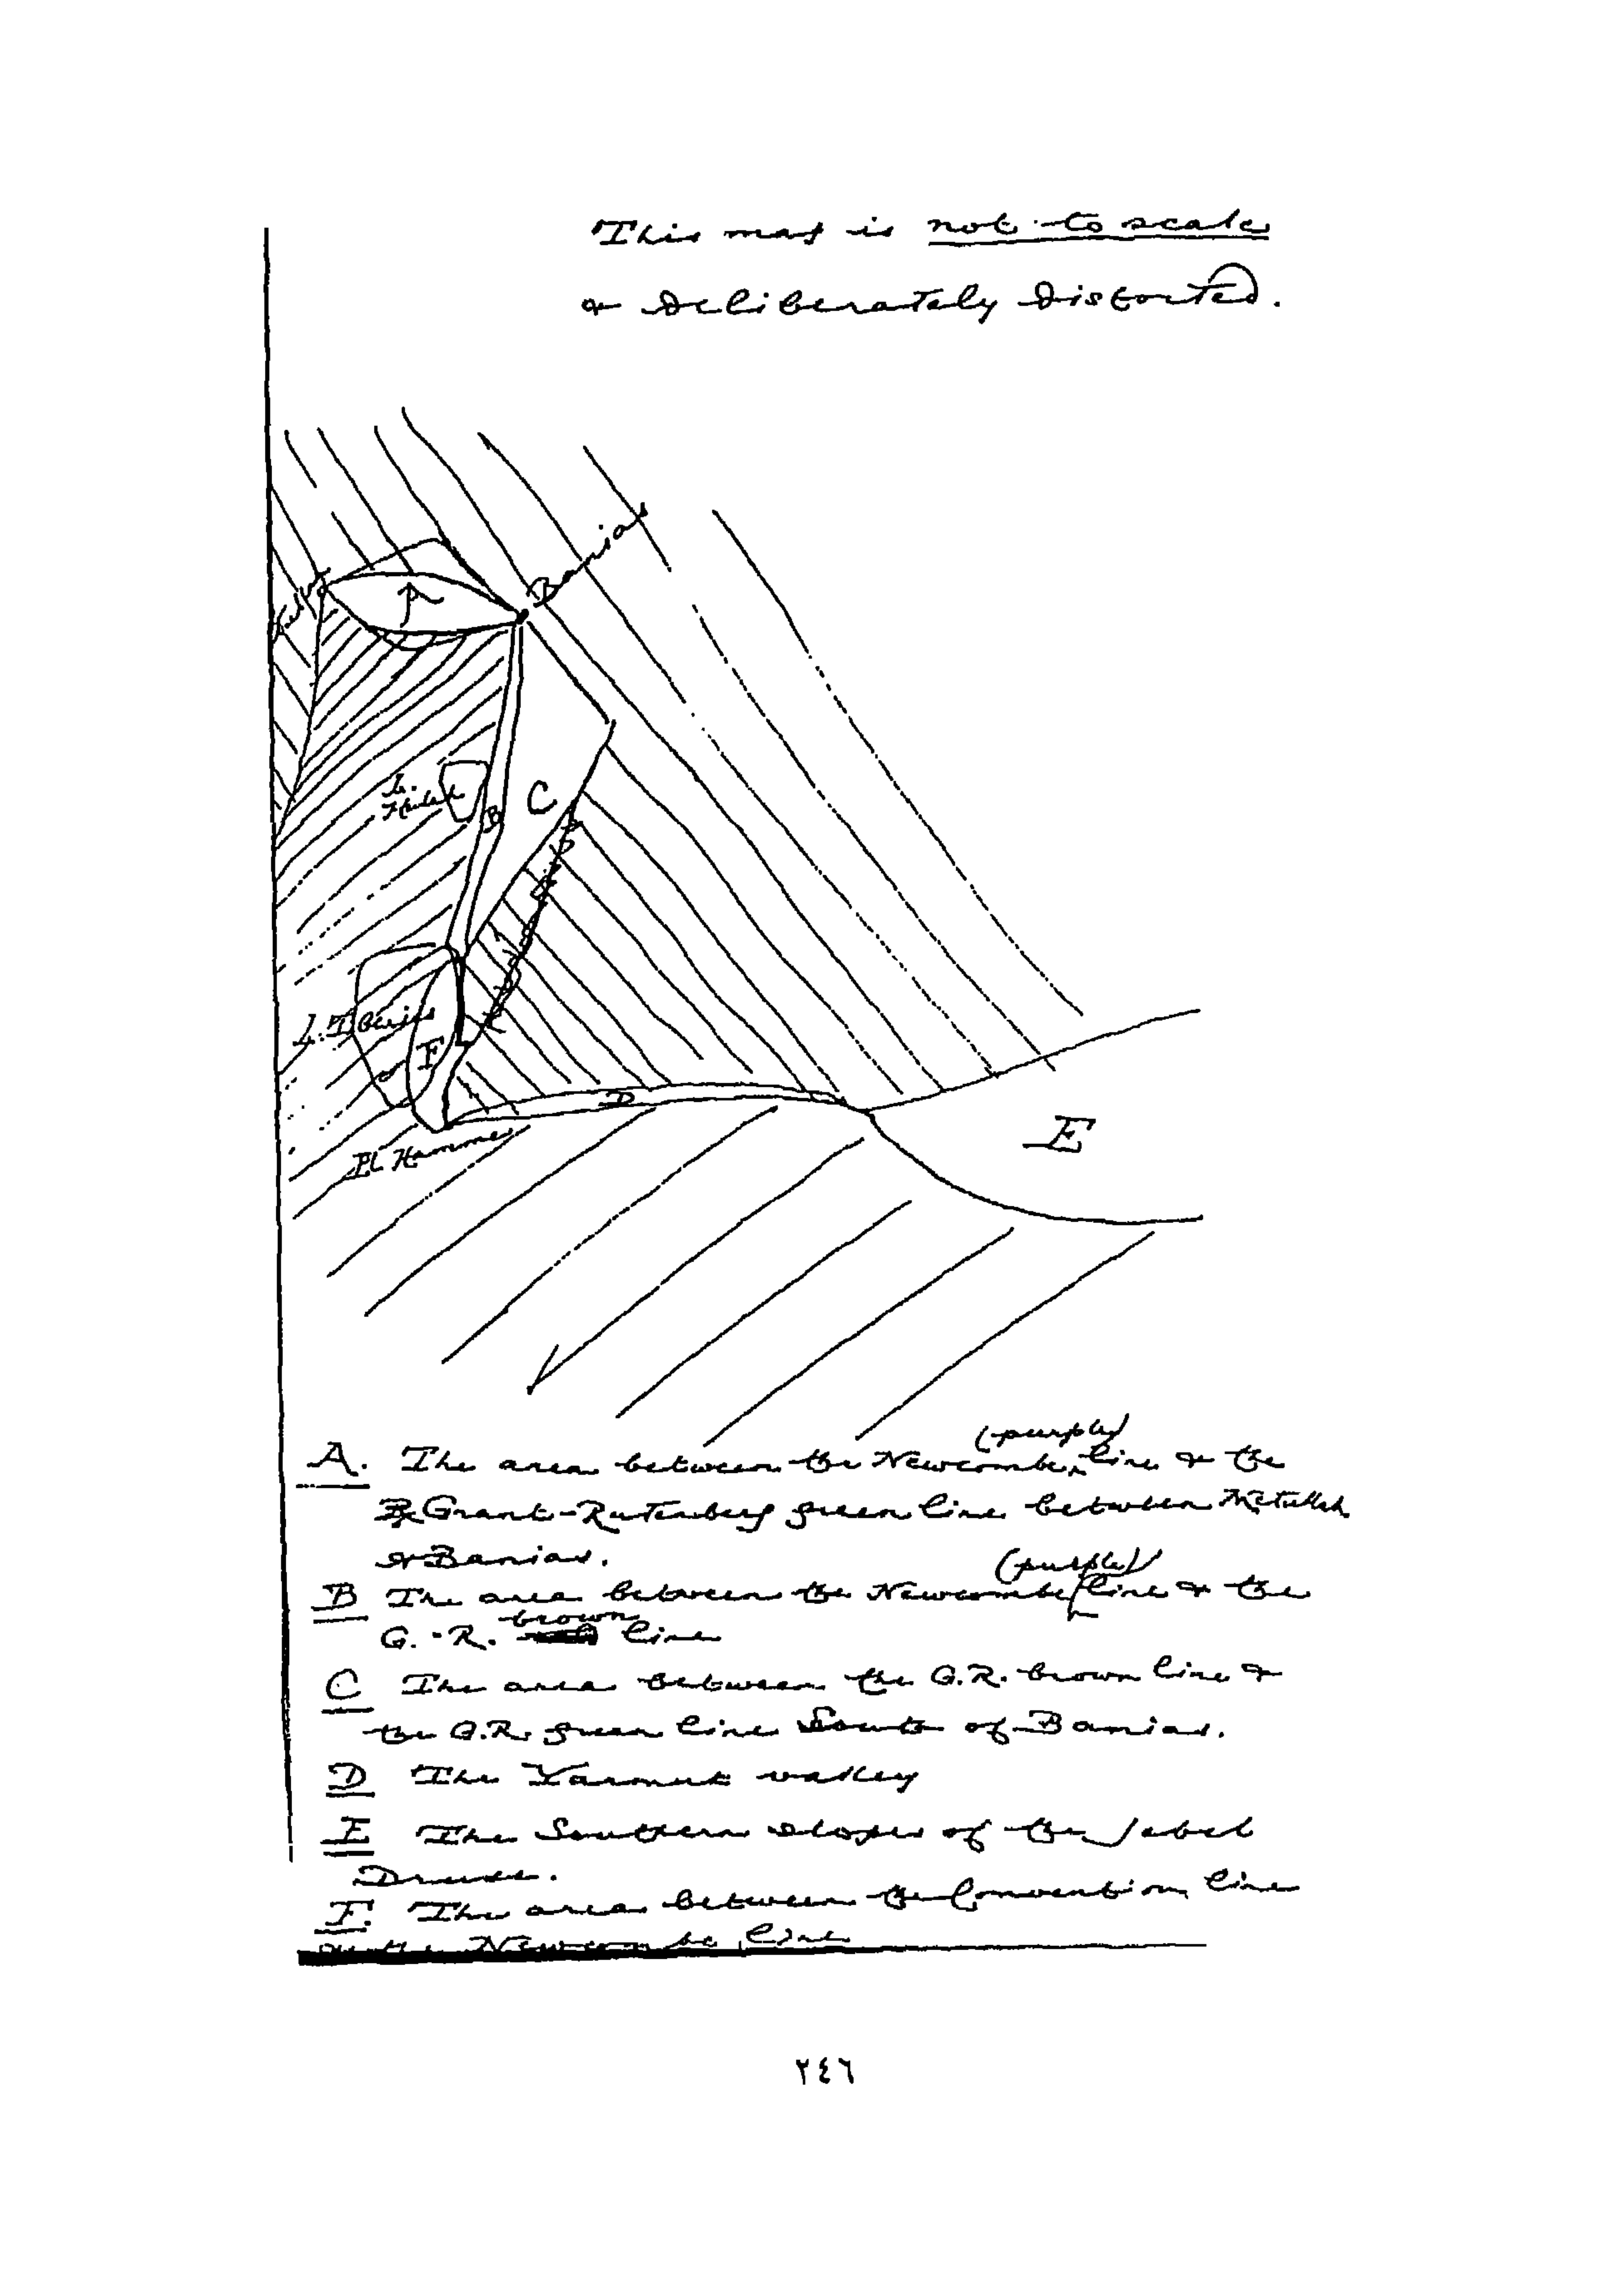 This map is not to scale
& deliberately distorted.
Banias
A
L.
Huleh
B
C
L. Tiberias
F
D
El Hamme
E
(purple)
A. The area between the Newcombe line & the
Grant-Rutenberg green line between Metullah
& Banias.
(purple)
B The area between the Newcombe line & the
brown
G.-R. line
C The area between the G.R. brown line &
the G.R. green line South of Banias.
D The Yarmuk valley
E The Southern slopes of the Jebel
Druse.
F. The area between the Convention line
& the Newcombe line
٢٤٦